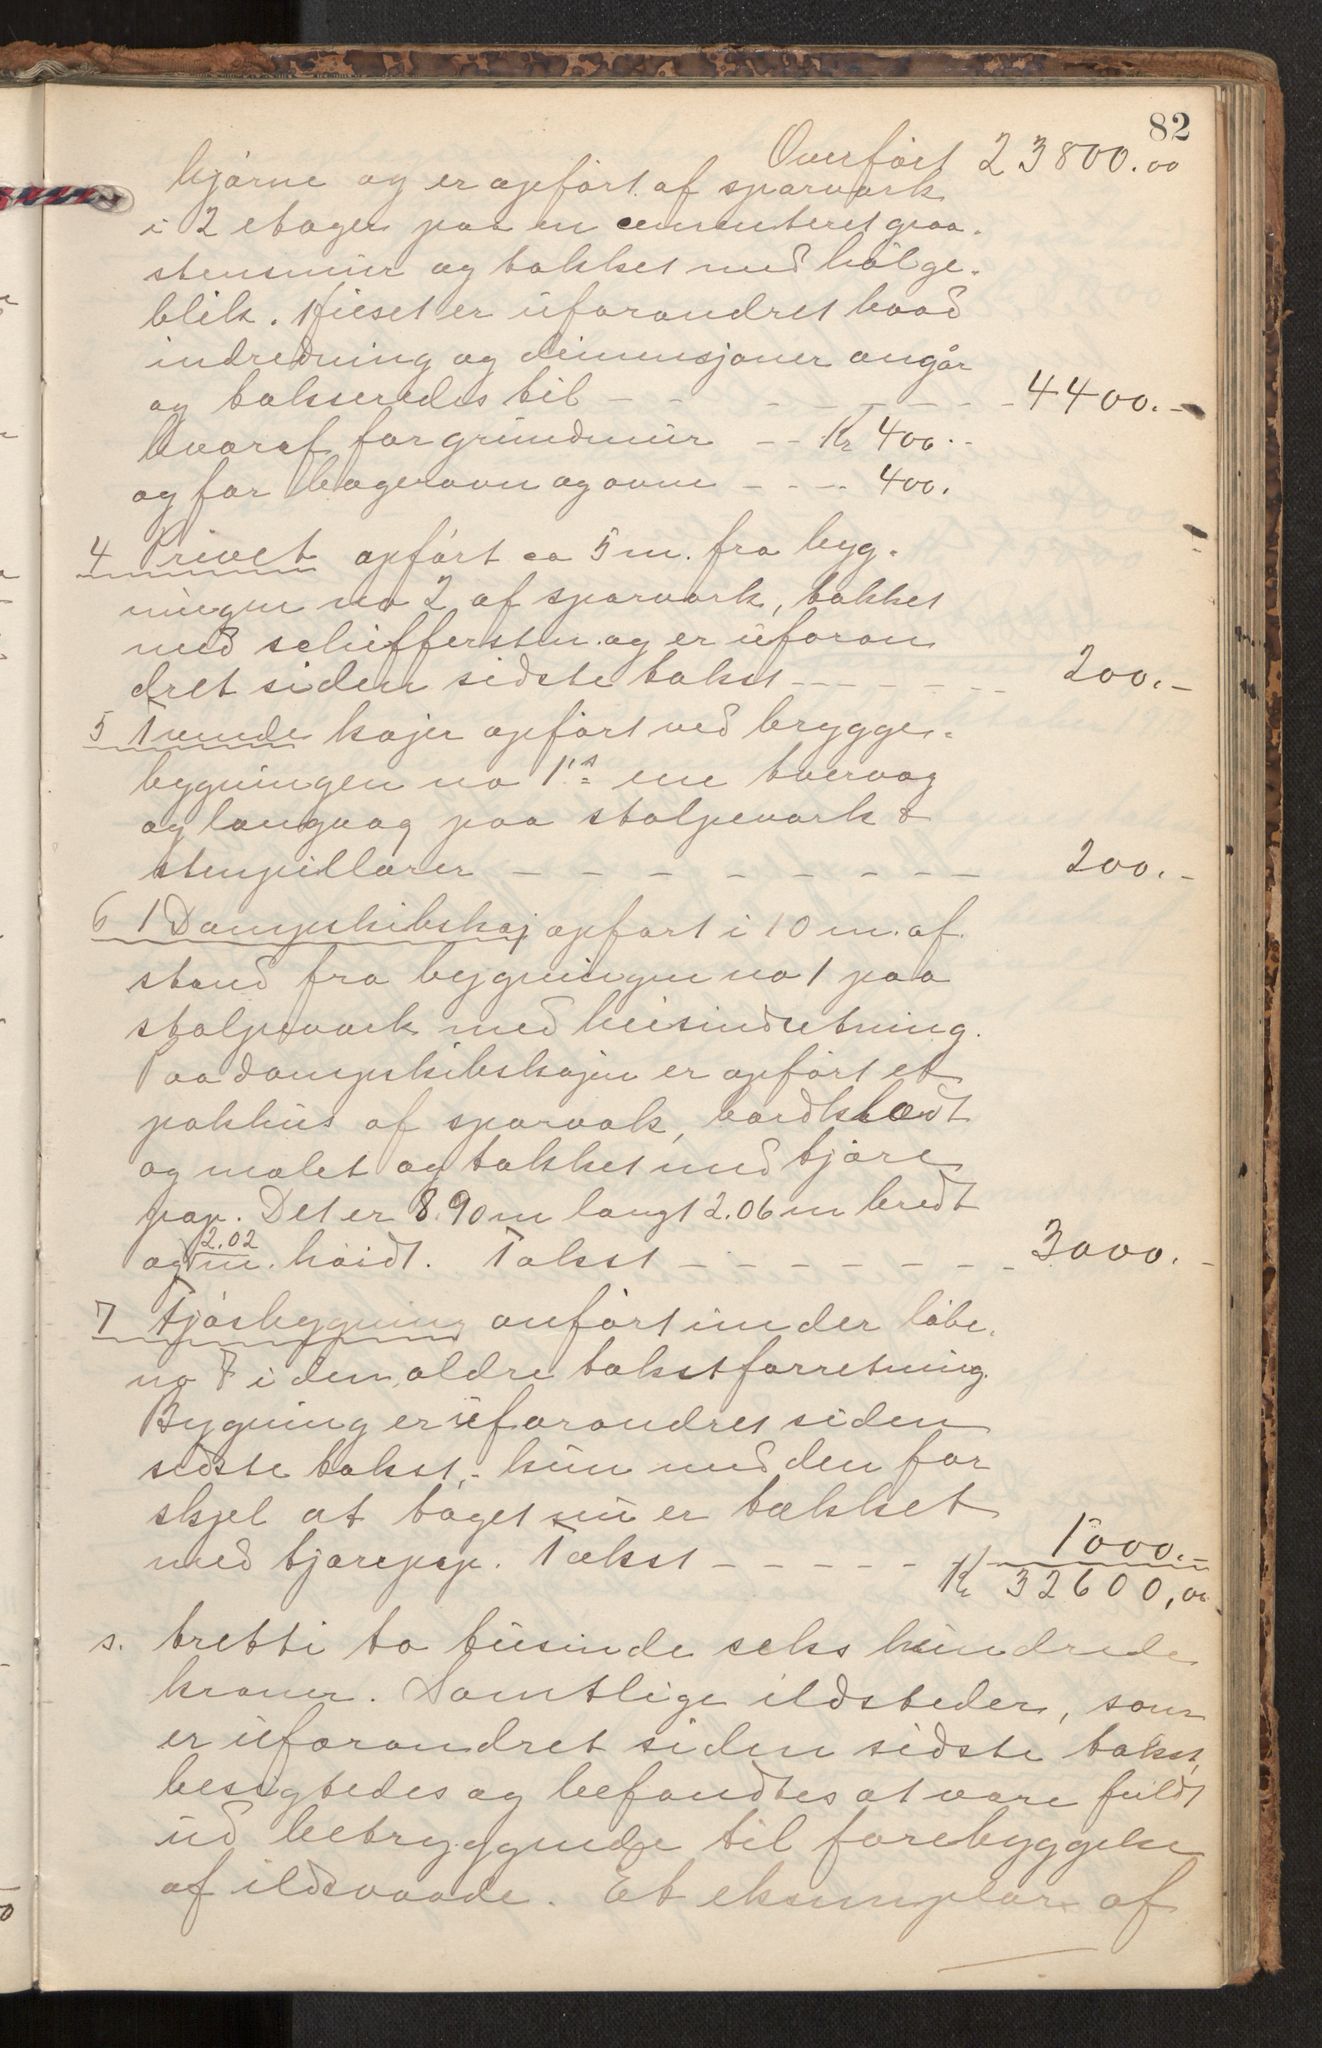 82
Overført 23800.00
hjørne og er opført af sparværk
i 2 etager paa en cementeret graa-
stensmur og tækket med bølge-
blik. Huset er uforandret hvad
indredning og dimensjoner angår
og takseredes til - - - - - - - 4400.-
Hvoraf for grundmur - - Kr 400.-
og for bagerovn og ovne - - - - 400.
4 Privet opført ca 5 m. fra byg-
ningen no 2 af sparværk, tækket
med schiffersten og er uforan
dret siden sidste takst - - - - - - 200.-
5 Tvende kajer opført ved brygge-
bygningen no 1's ene tvervæg
og langvæg paa stolpeværk &
stenpillarer - - - - - - - - 200.-
6 1 Dampskibskaj opført i 10 m. af
stand fra bygningen no 1 paa
stolpeværk med heisindretning.
Paa dampskibskajen er opført et
pakhus af sparvæk, bordklædt
og malet og tækket med tjære
pap. Det er 8.90 m langt 2.06 m bredt
og 2.02 m. høidt. Takst - - - - - - - 3000.-
7 Fjøsbygning anført under løbe.
no 7 i den ældre takstforretning.
Bygning er uforandret siden
sidste takst, - kun med den for
skjel at taget nu er tækket
med tjærepap. Takst - - - - - 1000.-
Kr 32600,00
s. tretti to tusinde seks hundrede
kroner. Samtlige ildsteder, som
er uforandret siden sidste takst,
besigtedes og befandtes at være fuldt
ud betryggende til forebyggelse
af ildsvaade. Et eksemplar af